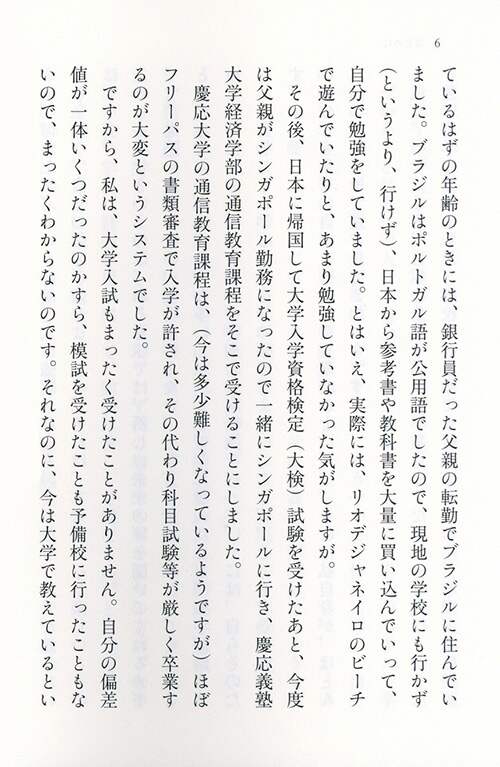 6
ているはずの年齢のときには、銀行員だった父親の転勤でブラジルに住んでい
ました。ブラジルはポルトガル語が公用語でしたので、現地の学校にも行かず
（というより、行けず）、日本から参考書や教科書を大量に買い込んでいって、
自分で勉強をしていました。とはいえ、実際には、リオデジャネイロのビーチ
で遊んでいたりと、あまり勉強していなかった気がしますが。
その後、日本に帰国して大学入学資格検定（大検）試験を受けたあと、今度
は父親がシンガポール勤務になったので一緒にシンガポールに行き、慶応義塾
大学経済学部の通信教育課程をそこで受けることにしました。
慶応大学の通信教育課程は、（今は多少難しくなっているようですが）ほぼ
フリーパスの書類審査で入学が許され、その代わり科目試験等が厳しく卒業す
るのが大変というシステムでした。
ですから、私は、大学入試もまったく受けたことがありません。自分の偏差
値が一体いくつだったのかすら、模試を受けたことも予備校に行ったこともな
いので、まったくわからないのです。それなのに、今は大学で教えているとい